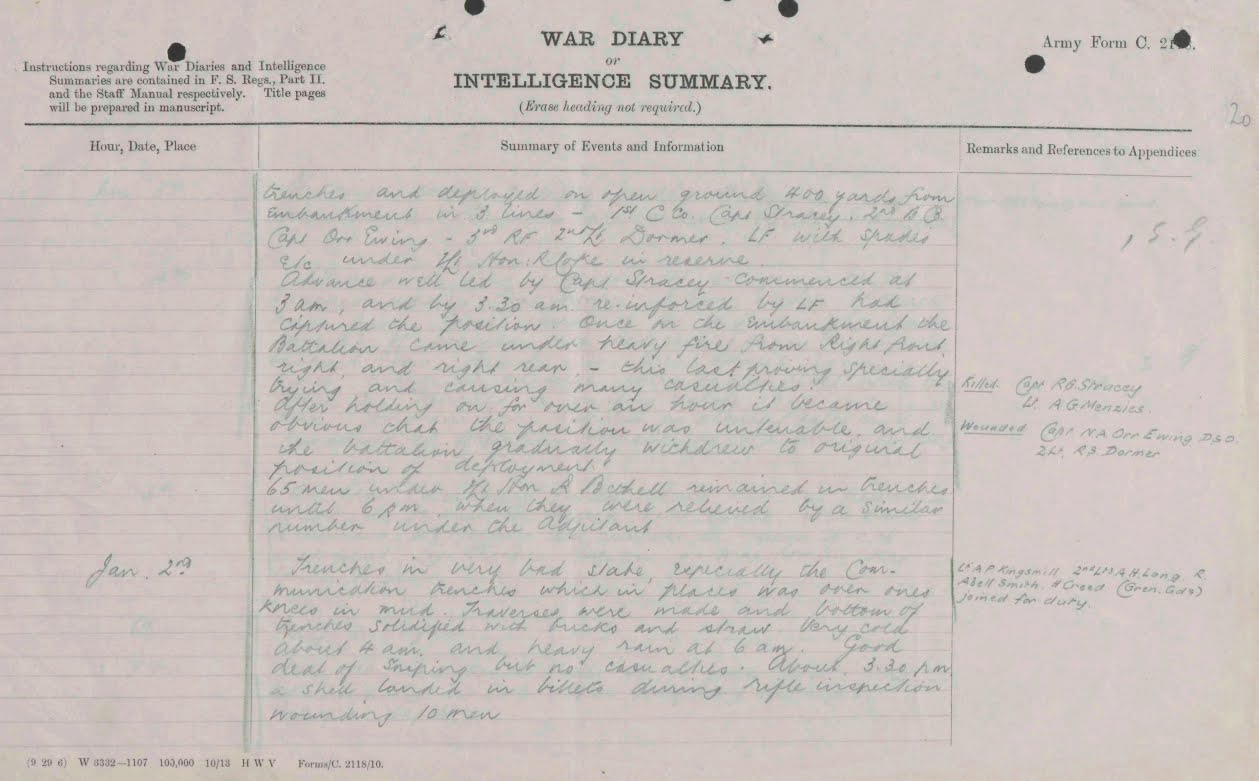 WAR DIARY
or
INTELLIGENCE SUMMARY.
(Erase heading not required.)
Army Form C. 2118.
Instructions regarding War Diaries and Intelligence
Summaries are contained in F. S. Regs., Part II.
and the Staff Manual respectively. Title pages
will be prepared in manuscript.
20
Hour, Date, Place
Summary of Events and Information
Remarks and References to Appendices
trenches and deployed on open ground 400 yards from
embankment in 3 lines - 1st C Co. Capt Stracey. 2nd
Capt Orr Ewing - 3rd RF 2nd Lt Dormer. LF with spades
etc under Lt Hon: R in reserve.
Advance well led by Capt Stracey commenced at
3 am, and by 3.30 am re-inforced by LF had
captured the position. Once on the embankment the
Battalion came under heavy fire from Right front,
right, and right rear, - this last proving specially
trying and causing many casualties.
After holding on for over an hour it became
obvious that the position was untenable, and
the battalion gradually withdrew to original
position of deployment.
65 men under Lt Hon R Bethell remained in trenches
until 6 pm when they were relieved by a similar
number under the Adjutant
Killed. Capt R.G. Stracey
Lt. A G Menzies.
Wounded Capt N.A Orr Ewing D.S.O.
2Lt. R.S. Dormer
Jan. 2nd
Trenches in very bad state, especially the Com-
munication trenches which in places was over ones
knees in mud. Traverses were made and bottom of
trenches solidified with bricks and straw. Very cold
about 4 am. and heavy rain at 6 am. Good
deal of sniping but no casualties. About 3.30 pm
a shell landed in billets during rifle inspection
wounding 10 men
Lt A P Kingsmill 2nd Lts A.H. Lang R.
Abell Smith. H Creed (Gren. Gds)
joined for duty.
(9 29 6) W 3332—1107 100,000 10/13 H W V Forms/C. 2118/10.